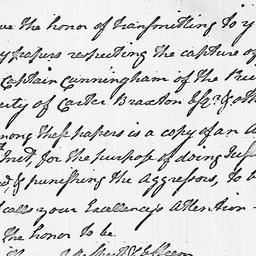 ve the honor of transmitting to y
y papers respecting the capture of
Captain Cunningham of the Pri
erty of Carter Braxton Esqr. & oth
mong these papers is a copy of an A
for the purpose of doing Jus
& punishing the Aggressors, to b
calls your Excellency's Attention
the honor to be